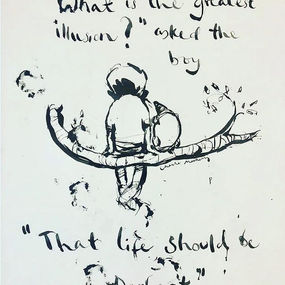 "What is the greatest
illusion?" asked the
boy
"That life should be
Perfect."